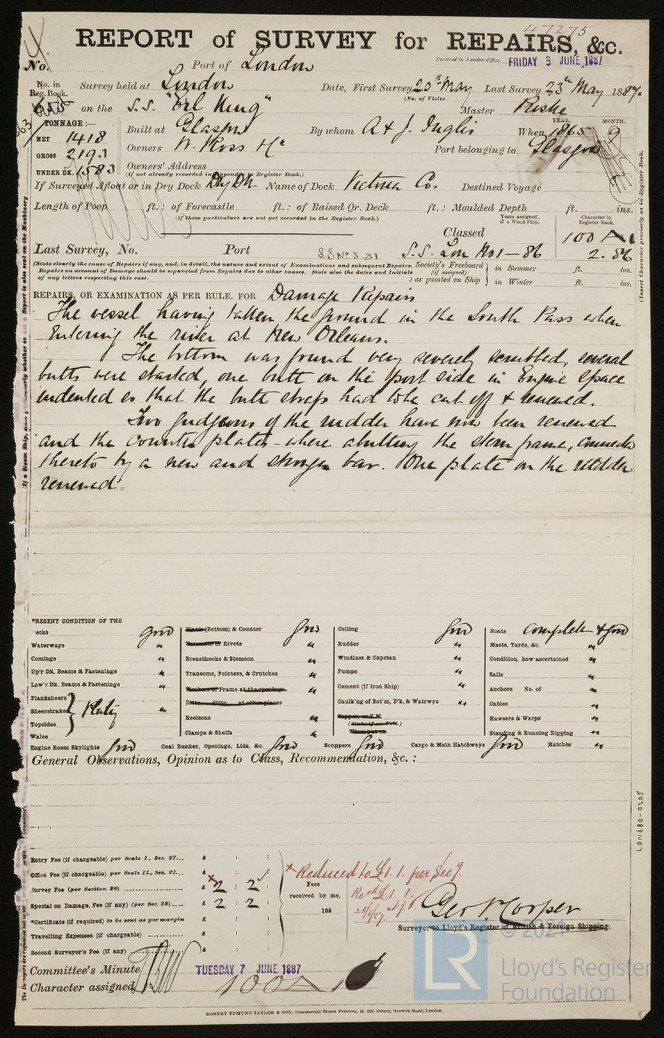 47275
REPORT of SURVEY for REPAIRS, &c.
No. Port of London
Received in London Office, FRIDAY 3 JUNE 1887
No. in Reg. Book. Survey held at London Date, First Survey 20th May Last Survey 23rd May 1887
(No. of Visits)
on the S.S. "Erl King" Master
TONNAGE:— Built at Glasgow By whom A & J. Inglis When 1865 9
YEAR. MONTH.
NET 1418
GROSS 2193 Owners W. Ross &Co Port belonging to Glasgow
UNDER DK. 1583 Owners' Address
(if not already recorded in Appendix to Register Book.)
If Surveyed Afloat or in Dry Dock Dry Dk Name of Dock Victoria Co. Destined Voyage
Length of Poop ft. : of Forecastle ft. : of Raised Qr. Deck ft. : Moulded Depth ft. ins.
(if these particulars are not yet recorded in the Register Book.)
Years assigned, if a Wood Ship. Character in Register Book.
Classed 100 A 1
Last Survey, No. Port S.S. Lon No1—86 2.86
(State clearly the cause of Repairs if any, and, in detail, the nature and extent of Examinations and subsequent Repairs.
Repairs on account of Damage should be separated from Repairs due to other causes. State also the dates and Initials
of any letters respecting this case.
Society's Freeboard (if assigned) as painted on Ship } in Summer ft. ins.
in Winter ft. ins.
REPAIRS, OR EXAMINATION AS PER RULE, FOR Damage Repairs
The vessel having taken the ground in the South Pass when
entering the river at New Orleans.
The bottom was found very severely scrubbed, several
butts were started, one butt on the port side in Engine space
indented so that the butt straps had to be cut off & renewed.
Two gudgeons of the rudder have now been renewed
and the counter plates where abutting the stern frame, connected
thereto by a new and stronger bar. One plate on the rudder
renewed.
PRESENT CONDITION OF THE
ecks good
Waterways "
Comings "
Up'r Dk. Beams & Fastenings "
Low'r Dk. Beams & Fastenings "
Planksheers
Sheerstrakes } Plating
Topsides
Wales
Plank (Bottom) & Counter good
Treenails or Rivets "
Breasthooks & Stemson "
Transoms, Pointers, & Crutches "
Timbers of Frame at the openings
Ditto ditto at other places
Keelsons "
Clamps & Shelfs "
Ceiling good
Rudder "
Windlass & Capstan "
Pumps "
Cement (if Iron Ship) "
Caulk'ng of Bot'm, D'k, & Watrwys "
Boats complete & good
Masts, Yards, &c. "
Condition, how ascertained "
Sails "
Anchors No. of "
Cables "
Hawsers & Warps "
Standing & Running Rigging "
Engine Room Skylights good Coal Bunker, Openings, Lids, &c. good Scuppers good Cargo & Main Hatchways good Hatches "
General Observations, Opinion as to Class, Recommendation, &c. :
Entry Fee (if chargeable) per Scale I., Sec. 27... £ : :
Office Fee (if chargeable) per Scale II., Sec. 27... £ : :
Survey Fee (per Section 28) £ 2 : 2
Special on Damage, Fee (if any) (per Sec. 28) £ 2 2
*Certificate (if required) to be sent as per margin
Travelling Expenses (if chargeable) £
Second Surveyor's Fee (if any) £
Fees received by me,
188
Reduced to £1. 1. per Secy.
Geo. Cooper
Surveyor to Lloyd's Register of British & Foreign Shipping.
Committee's Minute TUESDAY 7 JUNE 1887
Character assigned 100 A 1
ROBERT EDMUND TAYLOR & SON, Commercial Steam Printers, 19, Old Street, Goswell Road, London.
LON680-0205
LR
© 2021
Lloyd's Register
Foundation